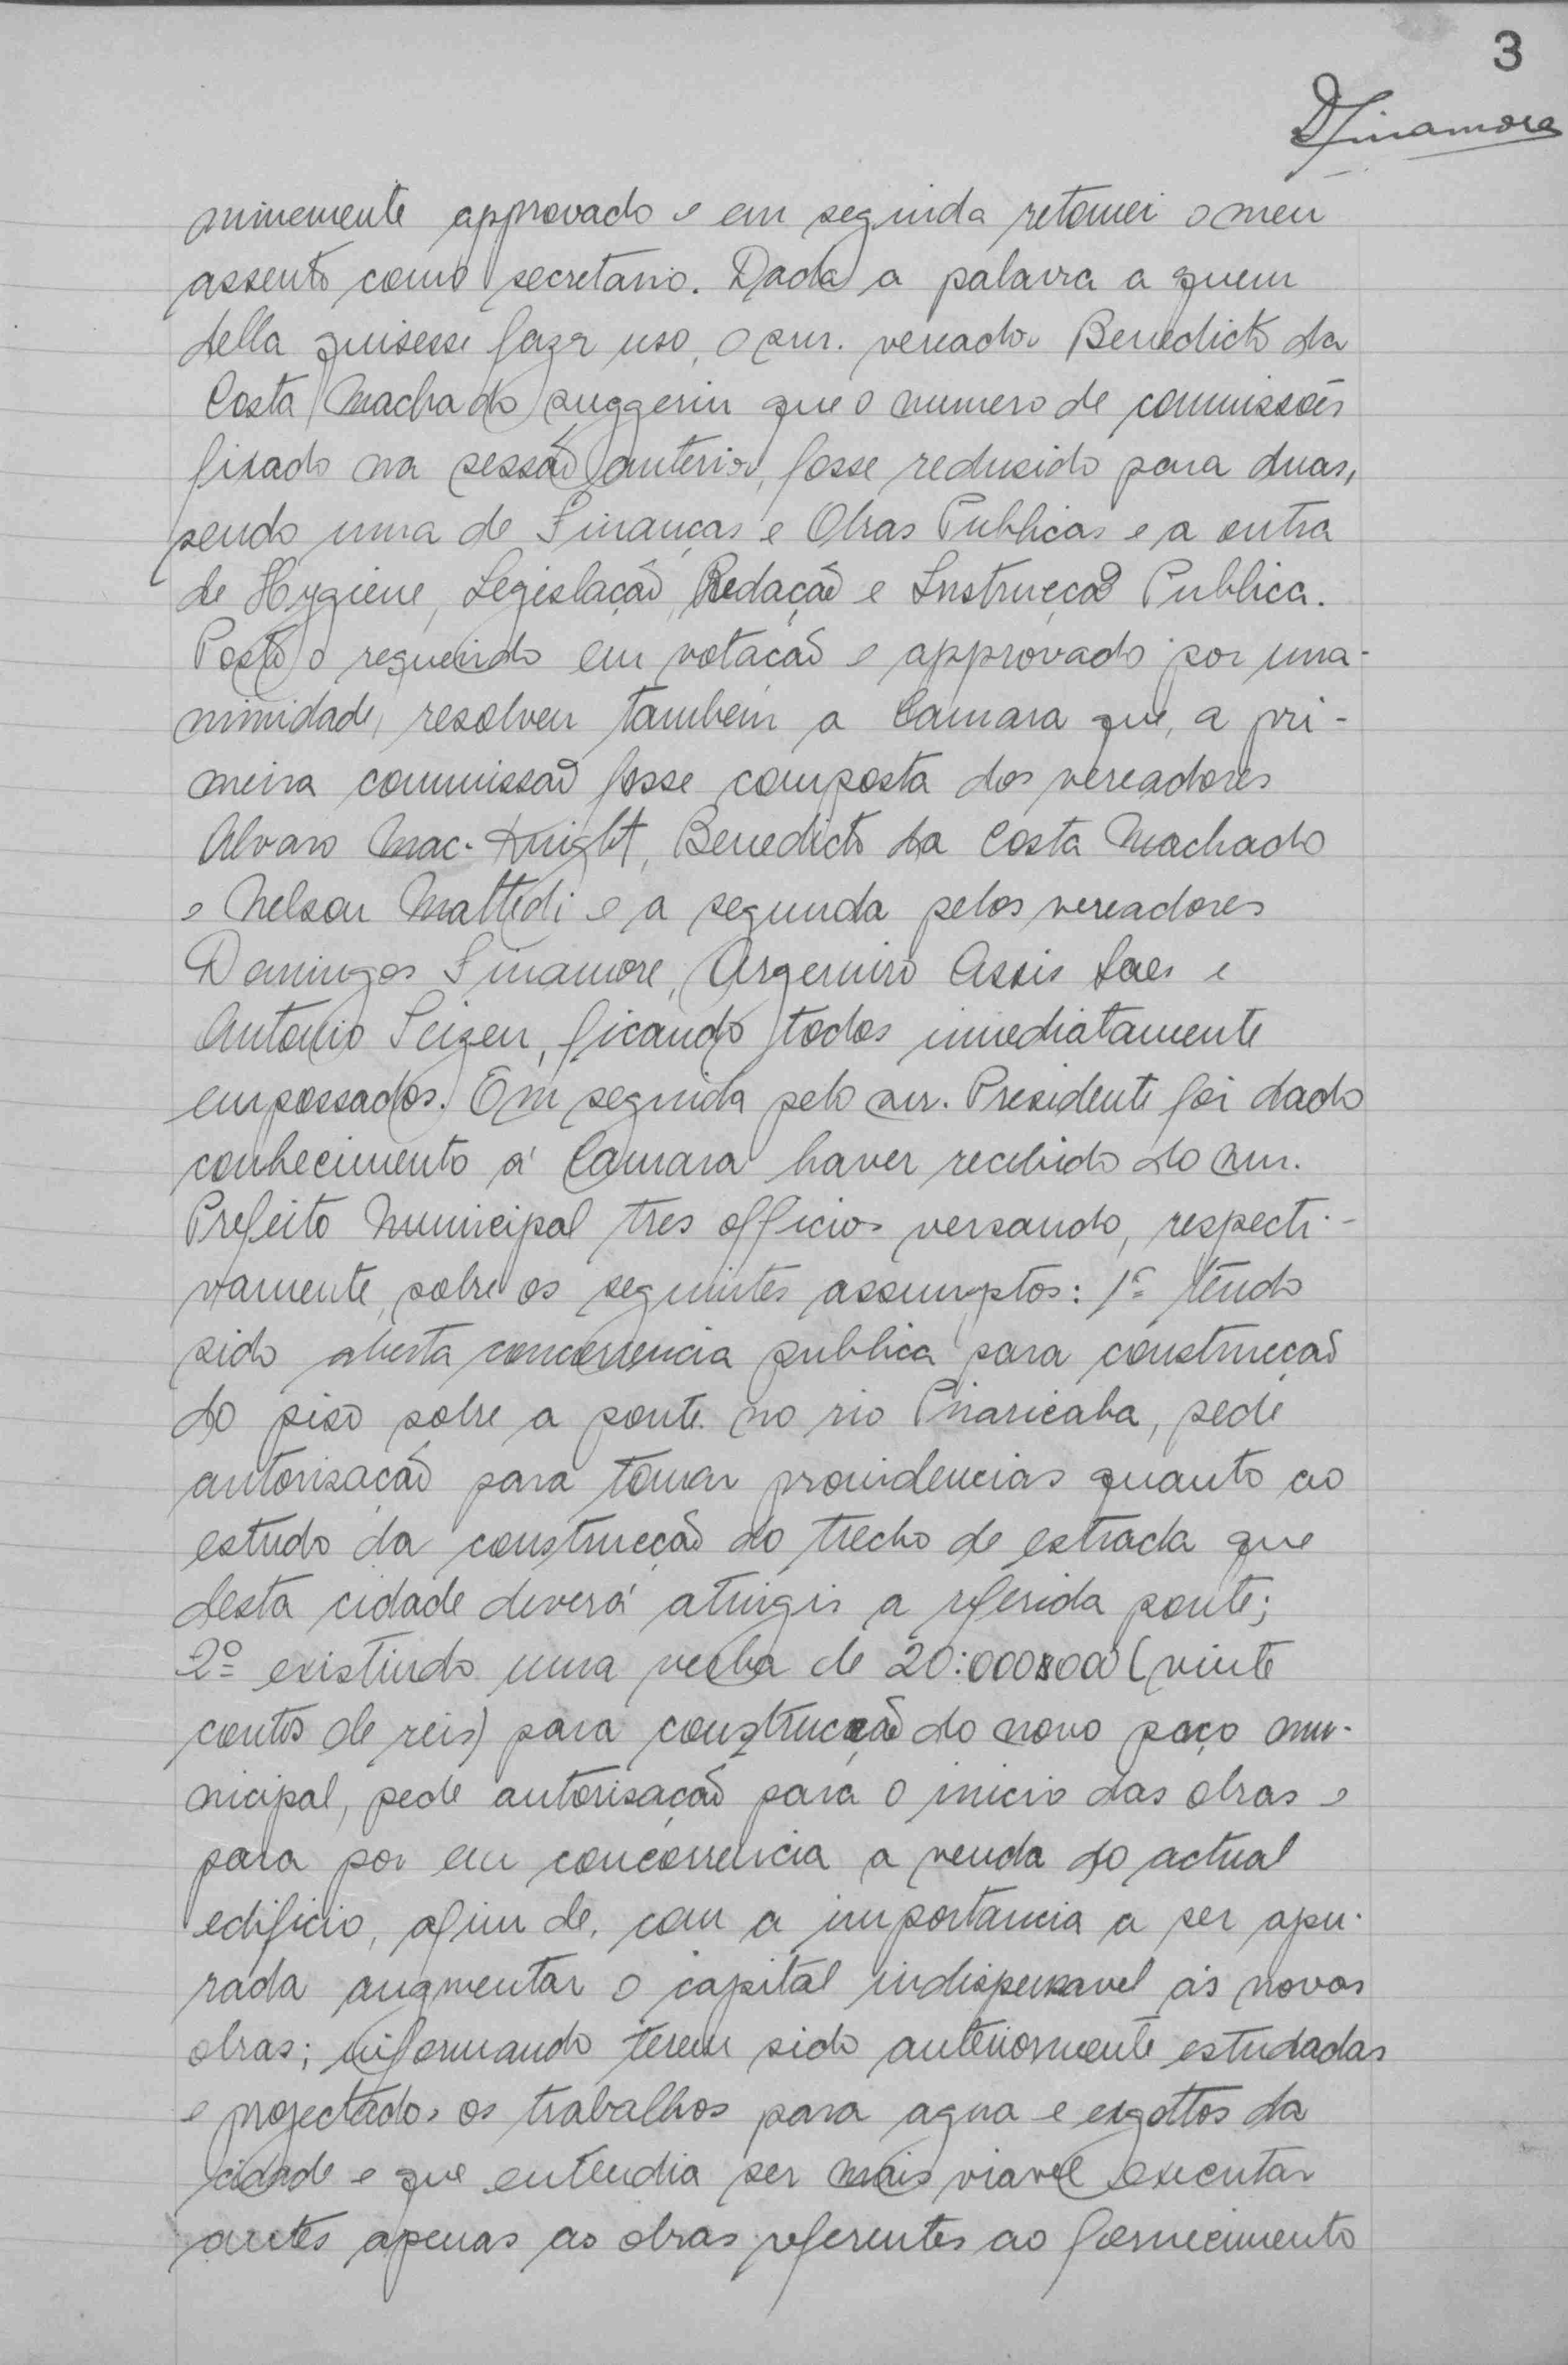 3
DFinamore
nimemente approvado e em seguida retomei o meu
assento como secretario. Dada a palavra a quem
della quisesse fazer uso, o snr. vereador Benedicto da
Costa Machado suggeriu que o numero de commissões
fixado na sessão anterior, fosse reduzido para duas,
sendo uma de Finanças e Obras Publicas e a outra
de Hygiene, Legislação, Redação e Instrucção Publica.
Posto o requerido em votação e approvado por una-
nimidade, resolveu tambem a Camara que, a pri-
meira commissão fosse composta dos vereadores
Alvaro Mac-Knight, Benedicto da Costa Machado
e Nelson Mattedi e a segunda pelos vereadores
Domingos Finamore, Argemiro Assis Saes e
Antonio Scizen, ficando todos immediatamente
empossados. Em seguida pelo snr. Presidente foi dado
conhecimento á Camara haver recebido do snr.
Prefeito Municipal tres officios versando, respecti-
vamente, sobre os seguintes assumptos: 1º tendo
sido aberta concorrencia publica para construcção
do piso sobre a ponte no rio Piracicaba, pede
autorisação para tomar providencias quanto ao
estudo da construcção do trecho de estrada que
desta cidade deverá atingir a referida ponte;
2º existindo uma verba de 20:000$000 (vinte
contos de reis) para construcção do novo paço mu-
nicipal, pede autorisação para o inicio das obras e
para por em concorrencia a venda do actual
edificio, afim de, com a importancia a ser apu-
rada augmentar o capital indispensavel ás novas
obras; informando terem sido anteriormente estudadas
e projectados os trabalhos para agua e exgottos da
cidade e que entendia ser mais viavel executar
antes apenas as obras referentes ao fornecimento